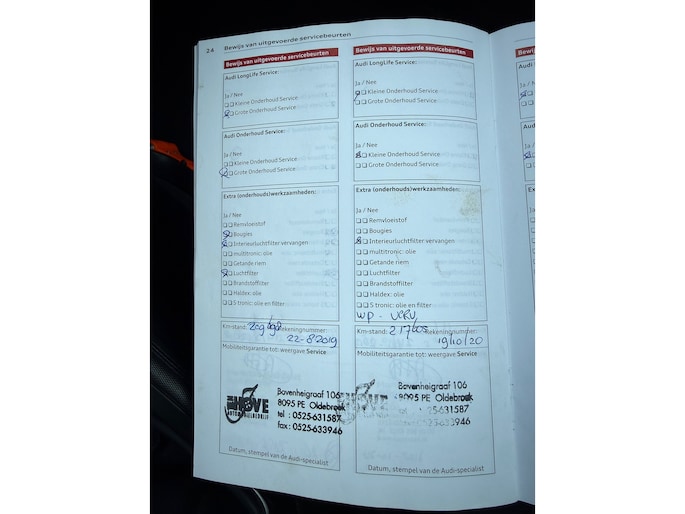 24 Bewijs van uitgevoerde servicebeurten
Bewijs van uitgevoerde servicebeurten
Audi LongLife Service:
Ja / Nee
Kleine Onderhoud Service
Grote Onderhoud Service
Audi Onderhoud Service:
Ja / Nee
Kleine Onderhoud Service
Grote Onderhoud Service
Extra (onderhouds)werkzaamheden:
Ja / Nee
Remvloeistof
Bougies
Interieurluchtfilter vervangen
multitronic: olie
Getande riem
Luchtfilter
Brandstoffilter
Haldex: olie
S tronic: olie en filter
Km-stand: Rekeningnummer:
22-8-2019
Mobiliteitsgarantie tot: weergave Service
HOVE
AUTOMOBIELBEDRIJF
Bovenheigraaf 106
8095 PE Oldebroek
tel : 0525-631587
fax: 0525-633946
Datum, stempel van de Audi-specialist
Bewijs van uitgevoerde servicebeurten
Audi LongLife Service:
Ja / Nee
Kleine Onderhoud Service
Grote Onderhoud Service
Audi Onderhoud Service:
Ja / Nee
Kleine Onderhoud Service
Grote Onderhoud Service
Extra (onderhouds)werkzaamheden:
Ja / Nee
Remvloeistof
Bougies
Interieurluchtfilter vervangen
multitronic: olie
Getande riem
Luchtfilter
Brandstoffilter
Haldex: olie
S tronic: olie en filter
wp - verv,
Km-stand: Rekeningnummer:
19/10/20
Mobiliteitsgarantie tot: weergave Service
HOVE
Bovenheigraaf 106
8095 PE Oldebroek
25-631587
Datum, stempel van de Audi-specialist